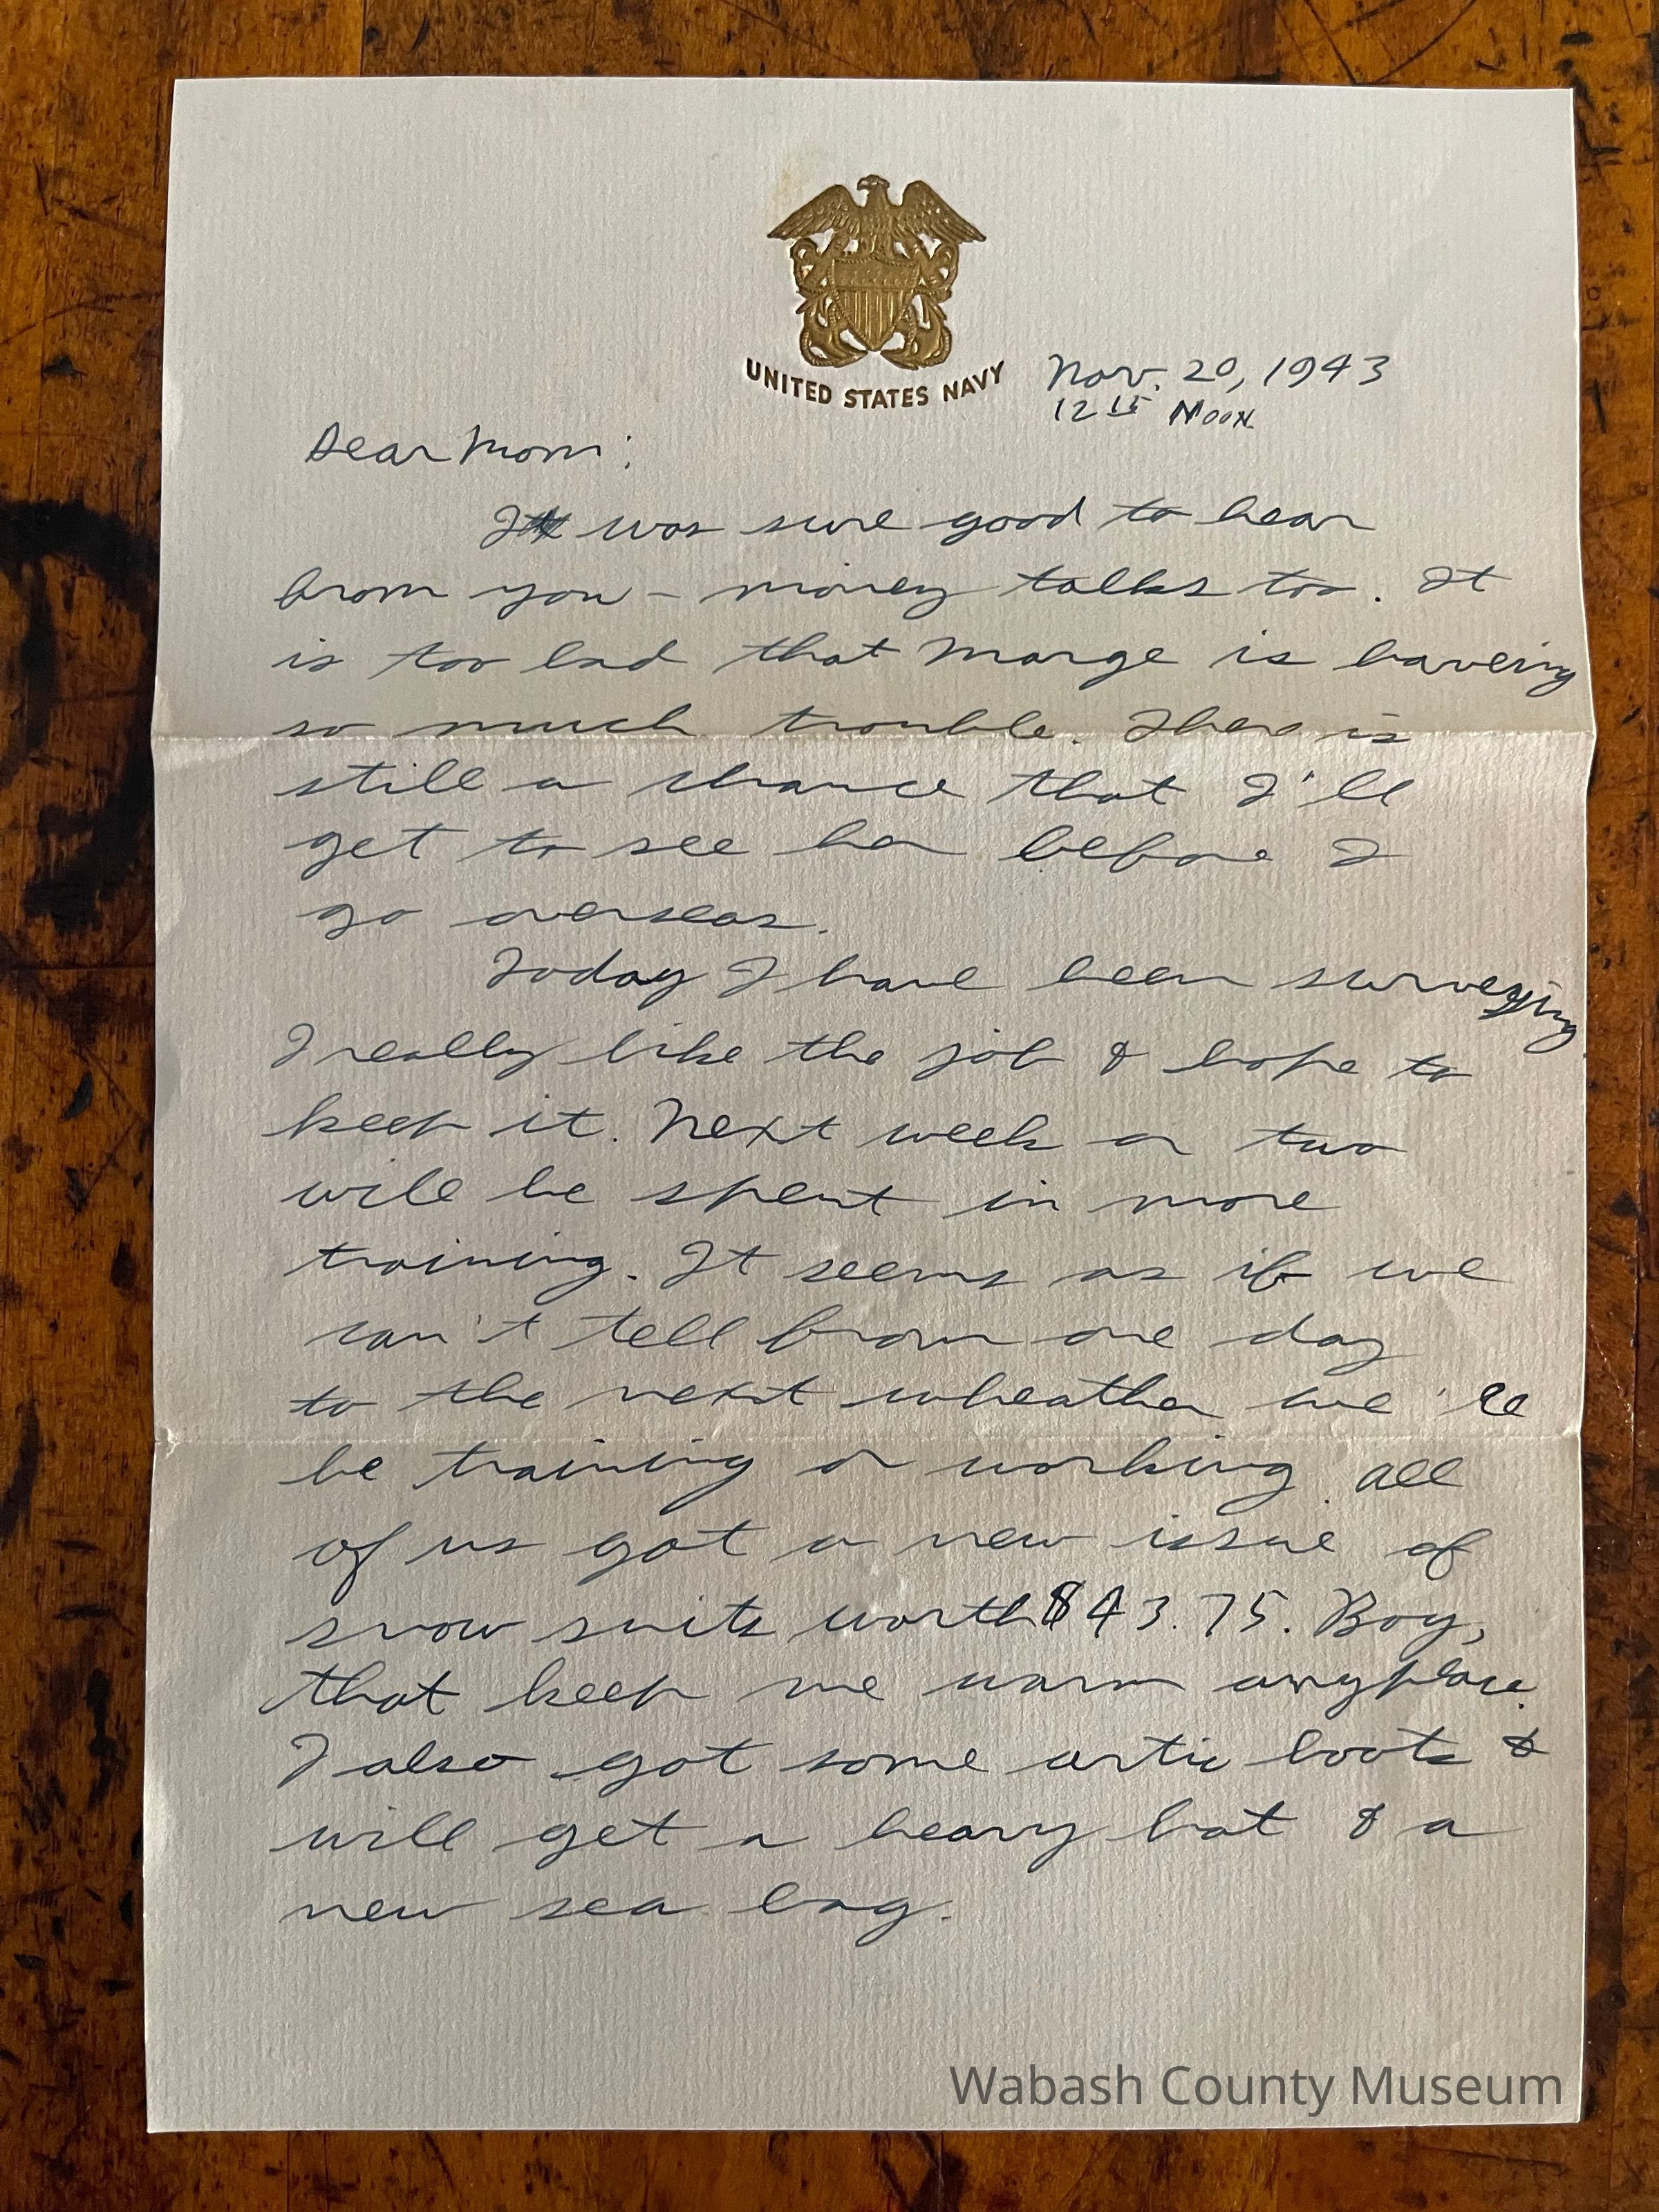 UNITED STATES NAVY
Nov. 20, 1943
12 15 Noon
Dear Mom:
It was sure good to hear
from you - money talks too. It
is too bad that Marge is haveing
so much trouble. There is
still a chance that I'll
get to see her before I
go overseas.
Today I have been surveying
I really like the job & hope to
keep it. Next week or two
will be spent in more
training. It seems as if we
can't tell from one day
to the next wheather we'll
be training or working. All
of us got a new issue of
snow suits worth $43.75. Boy,
that keep me warm anyplace.
I also got some artic boots &
will get a heavy hat & a
new sea bag.
Wabash County Museum